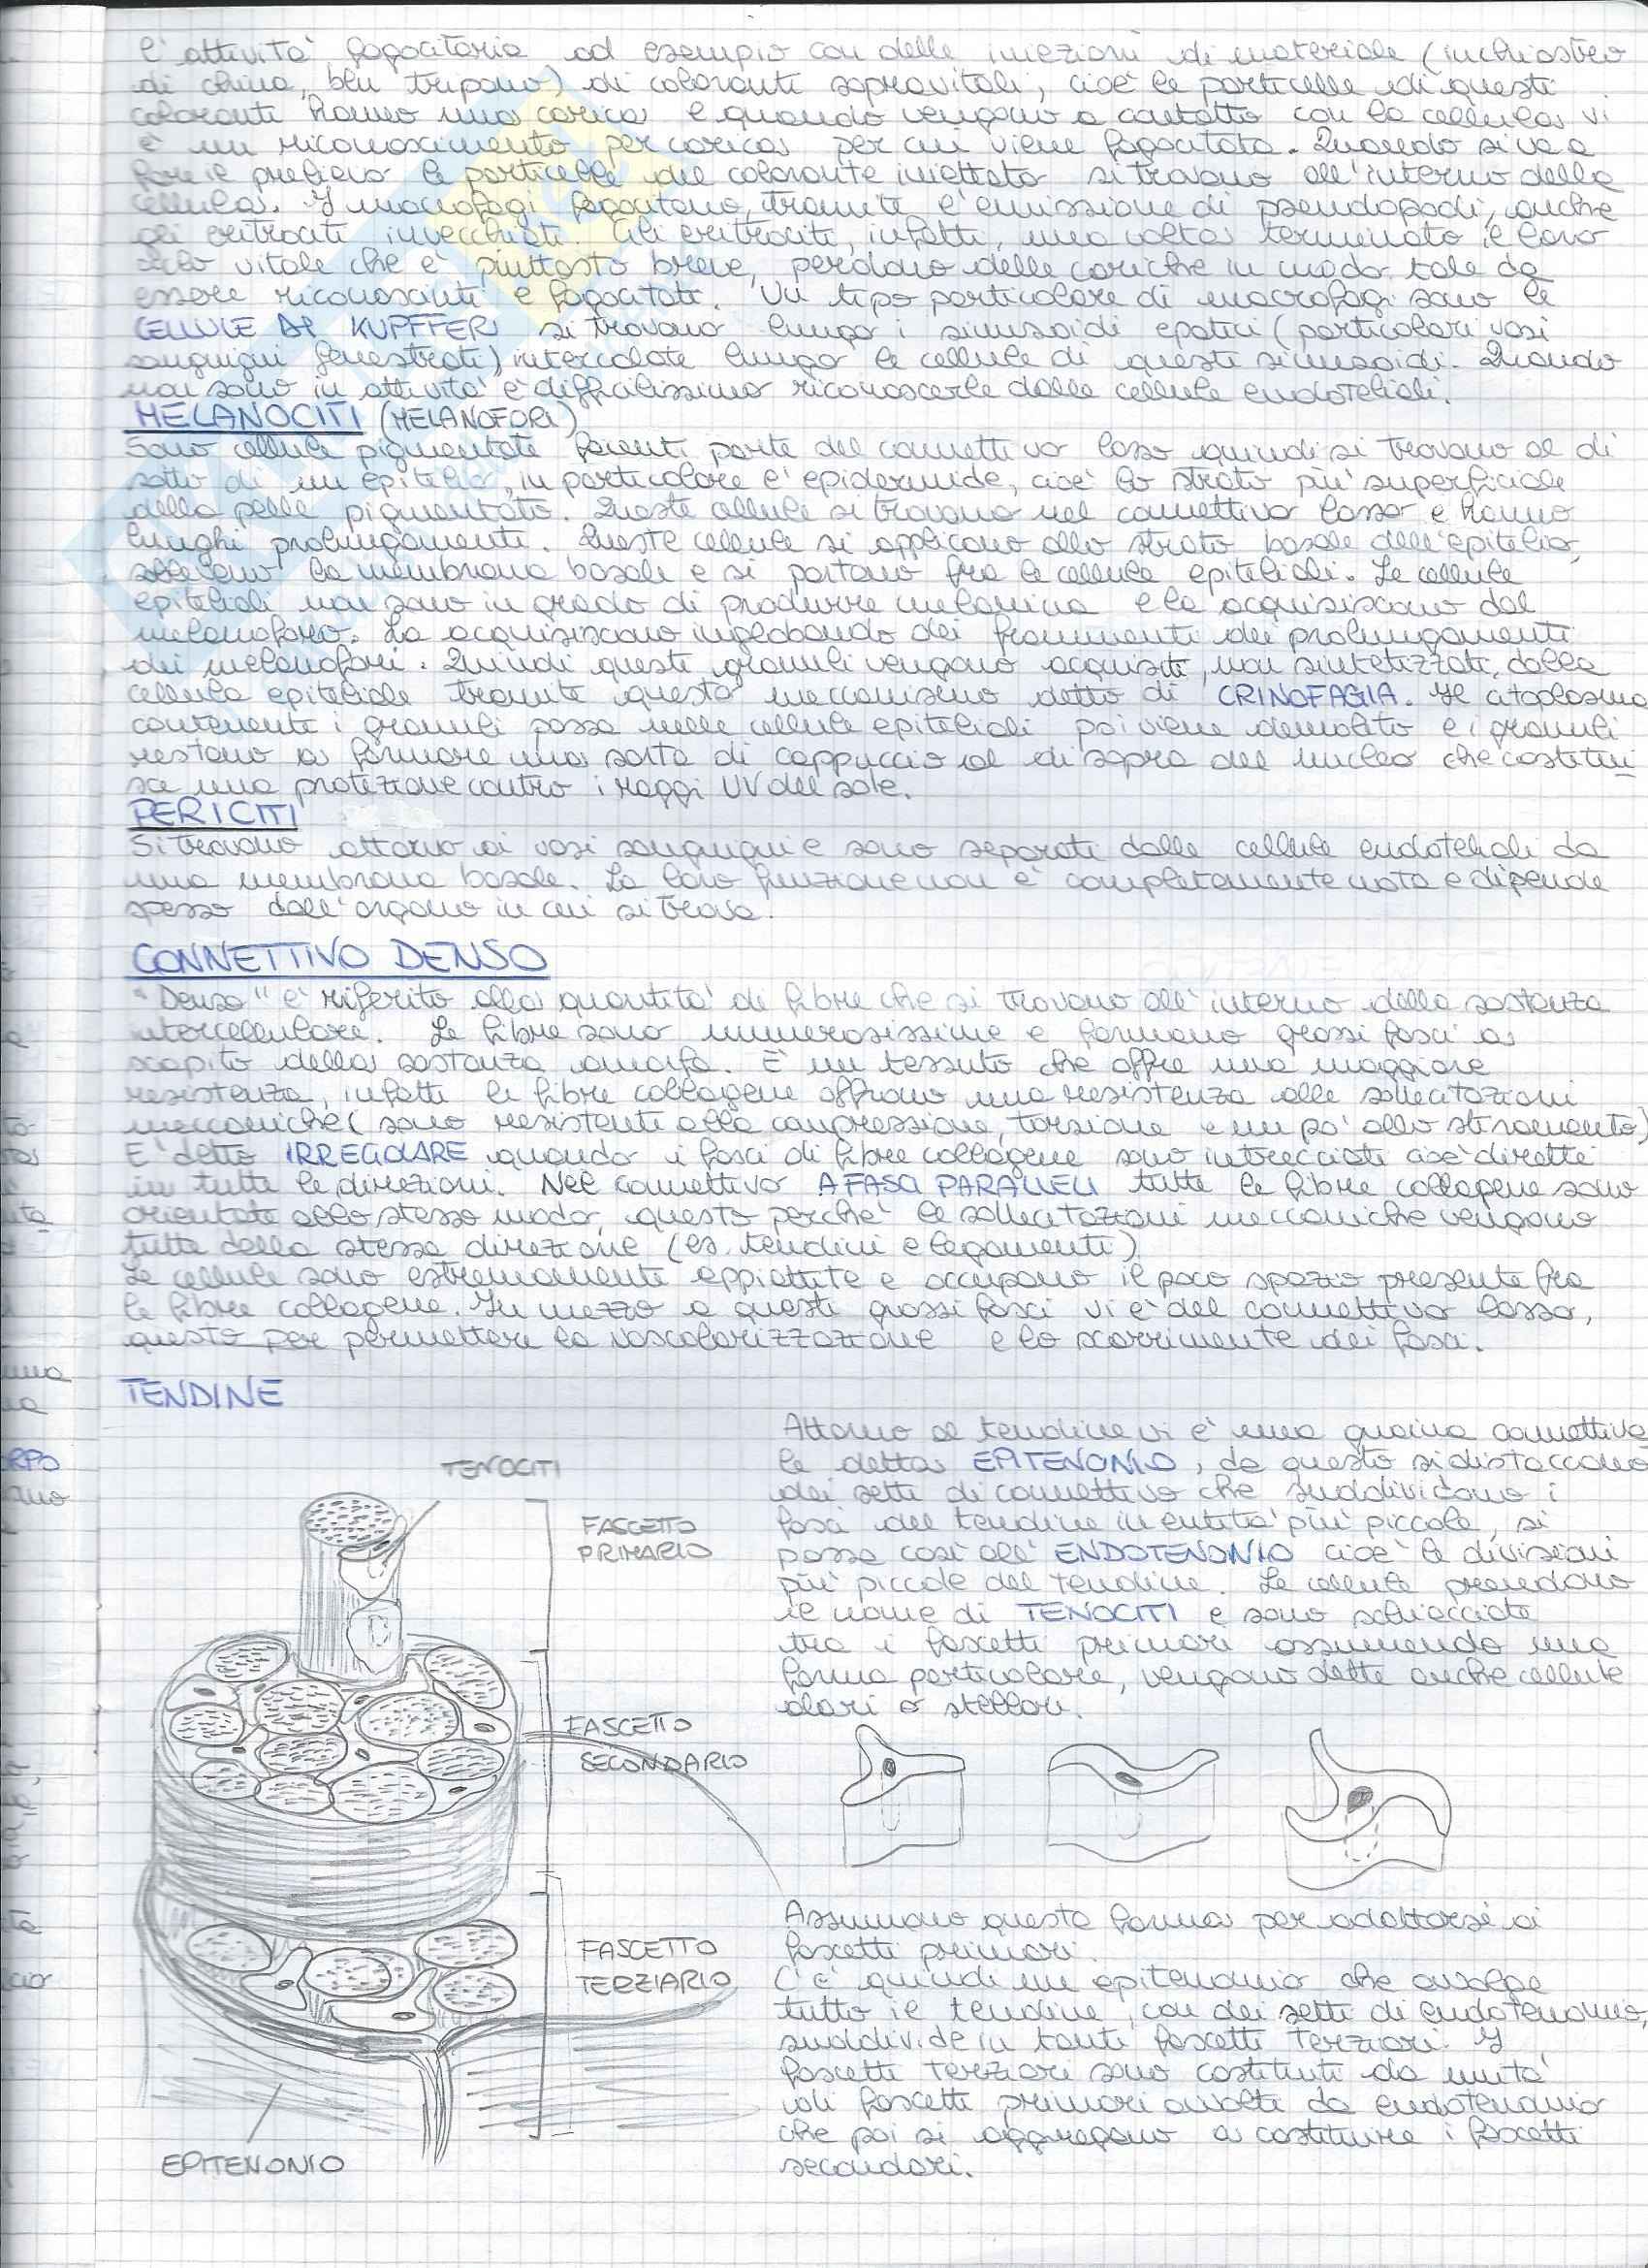 l'attività fagocitaria ad esempio con delle iniezioni di materiale (inchiostro
di china, blu tripano) di coloranti sopravitali, cioè le particelle di questi
coloranti hanno una carica e quando vengono a contatto con la cellula vi
è un riconoscimento per carica per cui viene fagocitata. Quando si va a
fare il prelievo le particelle del colorante iniettato si trovano all'interno della
cellula. I macrofagi fagocitano, tramite l'emissione di pseudopodi, anche
gli eritrociti invecchiati. Gli eritrociti, infatti, una volta terminato il loro
ciclo vitale che è piuttosto breve, perdono delle cariche in modo tale da
essere riconosciuti e fagocitati. Un tipo particolare di macrofagi sono le
CELLULE DI KUPFFER si trovano lungo i sinusoidi epatici (particolari vasi
sanguigni fenestrati) intercalate lungo le cellule di questi sinusoidi. Quando
non sono in attività è difficilissimo riconoscerle dalle cellule endoteliali.
MELANOCITI (MELANOFORI)
Sono cellule pigmentate facenti parte del connettivo lasso quindi si trovano al di
sotto di un epitelio, in particolare l'epidermide, cioè lo strato più superficiale
della pelle pigmentato. Queste cellule si trovano nel connettivo lasso e hanno
lunghi prolungamenti. Queste cellule si applicano allo strato basale dell'epitelio,
sollevano la membrana basale e si portano fra le cellule epiteliali. Le cellule
epiteliali non sono in grado di produrre melanina e la acquisiscono dal
melanoforo. La acquisiscono inglobando dei frammenti dei prolungamenti
dei melanofori. Quindi questi granuli vengono acquisiti, non sintetizzati, dalla
cellula epiteliale tramite questo meccanismo detto di CRINOFAGIA. Il citoplasma
contenente i granuli passa nelle cellule epiteliali poi viene demolito e i granuli
restano a formare una sorta di cappuccio al di sopra del nucleo che costitui
sce una protezione contro i raggi UV del sole.
PERICITI
Si trovano attorno ai vasi sanguigni e sono separati dalle cellule endoteliali da
una membrana basale. La loro funzione non è completamente nota e dipende
spesso dall'organo in cui si trova.
CONNETTIVO DENSO
"Denso" è riferito alla quantità di fibre che si trovano all'interno della sostanza
intercellulare. Le fibre sono numerosissime e formano grossi fasci a
scapito della sostanza amorfa. È un tessuto che offre una maggiore
resistenza, infatti le fibre collagene offrono una resistenza alle sollecitazioni
meccaniche (sono resistenti alla compressione, torsione e un po' allo stiramento)
E' detto IRREGOLARE quando i fasci di fibre collagene sono intrecciati cioè dirette
in tutte le direzioni. Nel connettivo A FASCI PARALLELI tutte le fibre collagene sono
orientate allo stesso modo, questo perché le sollecitazioni meccaniche vengono
tutte dalla stessa direzione (es. tendini e legamenti)
Le cellule sono estremamente appiattite e occupano il poco spazio presente fra
le fibre collagene. In mezzo a questi grossi fasci vi è del connettivo lasso,
questo per permettere la vascolarizzazione e lo scorrimento dei fasci.
TENDINE
Attorno al tendine vi è una guaina connettiva
le detta EPITENONIO, da questo si distaccano
dei setti di connettivo che suddividono i
fasci del tendine in entità più piccole, si
passa così all'ENDOTENONIO cioè le divisioni
più piccole del tendine. Le cellule prendono
il nome di TENOCITI e sono schiacciate
tra i fascetti primari assumendo una
forma particolare, vengono dette anche cellule
alari o stellari.
TENOCITI
FASCETTO
PRIMARIO
FASCETTO
SECONDARIO
FASCETTO
TERZIARIO
EPITENONIO
Assumono questa forma per adattarsi ai
fascetti primari.
C'è quindi un epitenonio che avvolge
tutto il tendine, con dei setti di endotenonio,
suddivide in tanti fascetti terziari. I
fascetti terziari sono costituiti da unità
di fascetti primari avvolte da endotenonio
che poi si aggregano a costituire i fascetti
secondari.